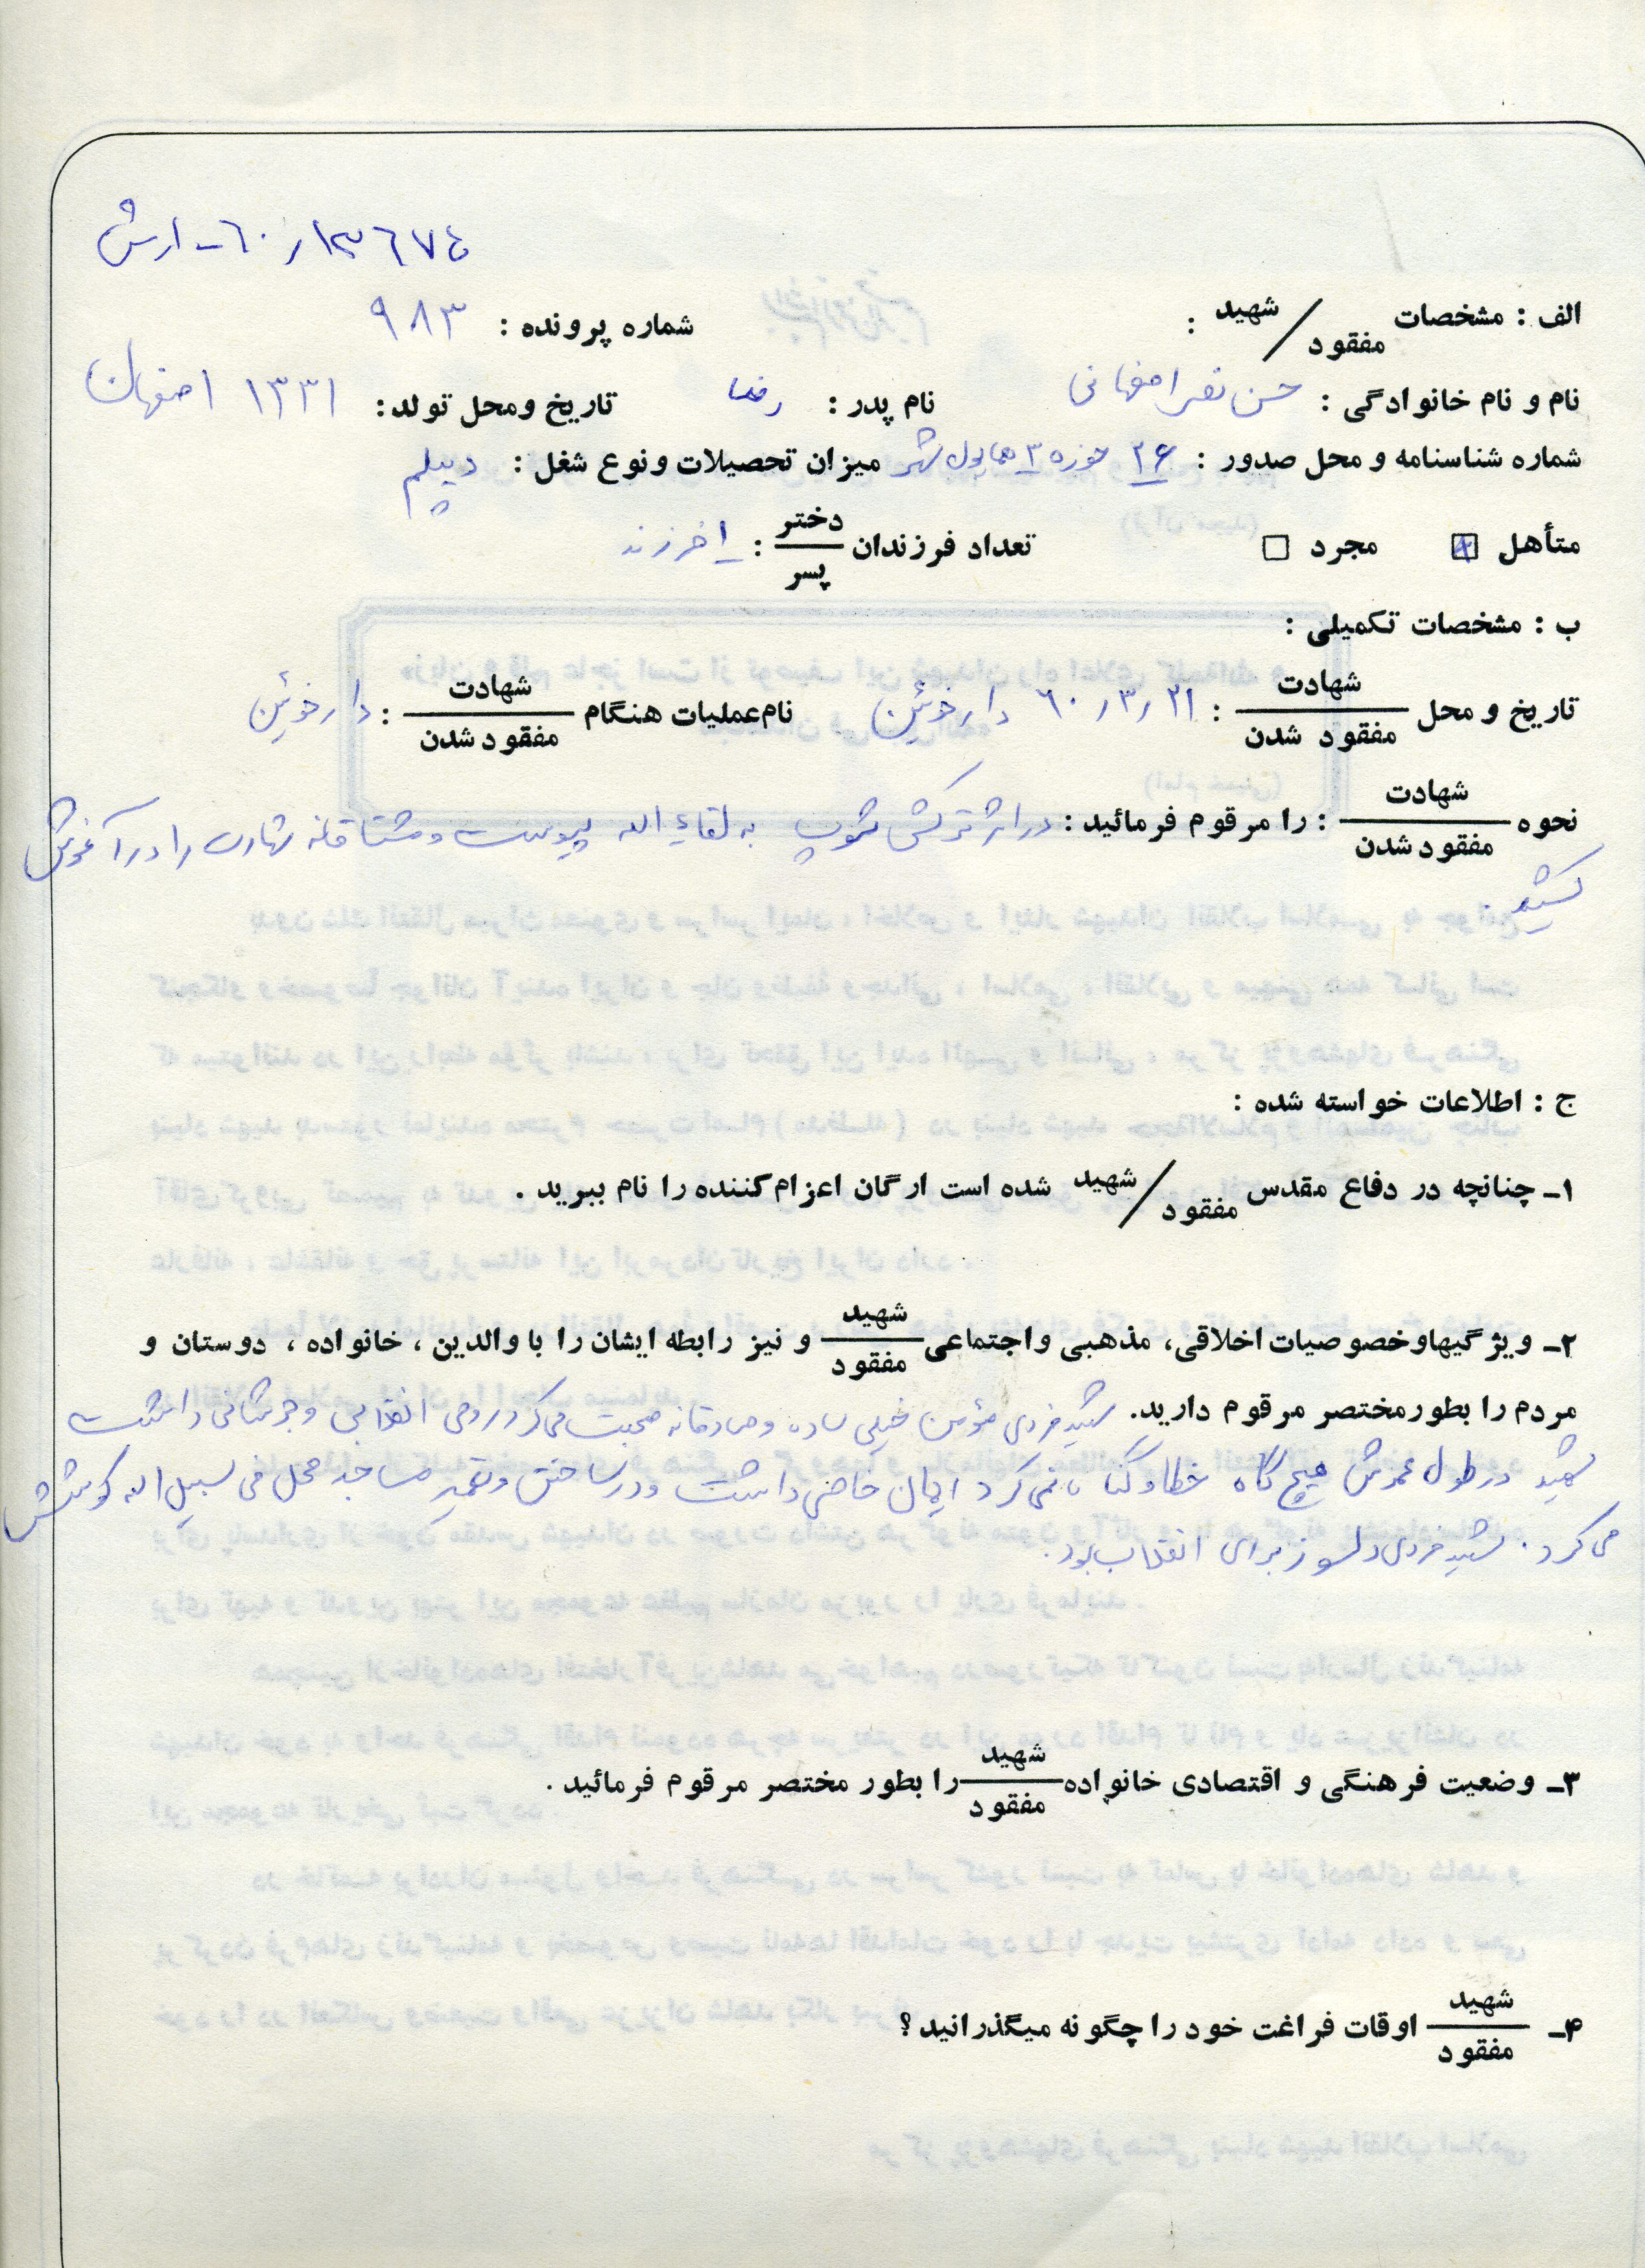 ۶۰/۱۳۶۷۴-ارتش
الف : مشخصات شهید / مفقود :
شماره پرونده : ۹۸۳
نام و نام خانوادگی : حسن نصر اصفهانی نام پدر : رضا تاریخ ومحل تولد : ۱۳۳۱ اصفهان
شماره شناسنامه و محل صدور : ۲۶ حوزه ۳ همایون شهر میزان تحصیلات ونوع شغل : دیپلم
متأهل ☒ مجرد ☐ تعداد فرزندان دختر / پسر : ۱ فرزند
ب : مشخصات تکمیلی :
تاریخ و محل شهادت / مفقود شدن : ۶۰/۳/۲۱ دارخوئین نام عملیات هنگام شهادت / مفقود شدن : دارخوئین
نحوه شهادت / مفقود شدن : را مرقوم فرمائید : در اثر ترکش توپ به لقاء الله پیوست و مشتاقانه شهادت را در آغوش
کشید .
ج : اطلاعات خواسته شده :
۱ـ چنانچه در دفاع مقدس شهید / مفقود شده است ارگان اعزام کننده را نام ببرید .
۲ـ ویژگیها وخصوصیات اخلاقی، مذهبی واجتماعی شهید / مفقود و نیز رابطه ایشان را با والدین ، خانواده ، دوستان و
مردم را بطور مختصر مرقوم دارید. شهید فردی مؤمن خیلی ساده و صادقانه صحبت می کرد روحی انقلابی و داشت
شهید در طول عمرش هیچ گاه خطا و گناه نمی کرد ایمان خاصی داشت و در ساختن و تعمیر مساجد محل فی سبیل الله کوشش
می کرد . شهید فردی دلسوز برای انقلاب بود .
۳ـ وضعیت فرهنگی و اقتصادی خانواده شهید / مفقود را بطور مختصر مرقوم فرمائید .
۴ـ شهید / مفقود اوقات فراغت خود را چگونه میگذرانید ؟